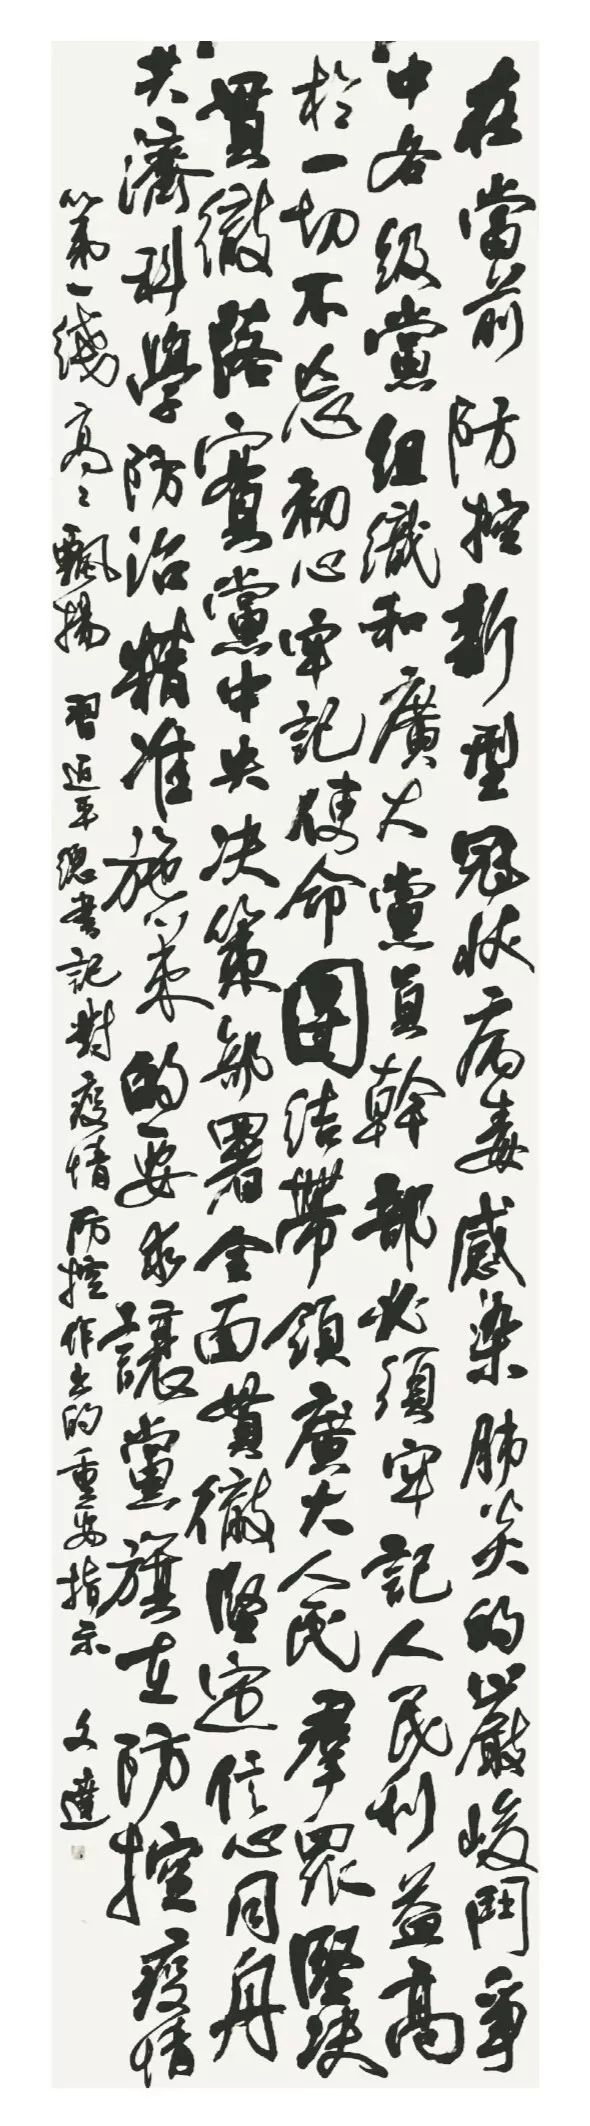 在當前防控新型冠狀病毒感染肺炎的嚴峻鬥爭
中各級黨組織和廣大黨員幹部必須牢記人民利益高
於一切不忘初心牢記使命團結帶領廣大人民羣眾堅决
貫徹落實黨中央决策部署全面貫徹堅定信心同舟
共濟科學防治精准施策的要求讓黨旗在防控疫情
第一綫高々飄揚 習近平總書記對疫情防控作出的重要指示 文達